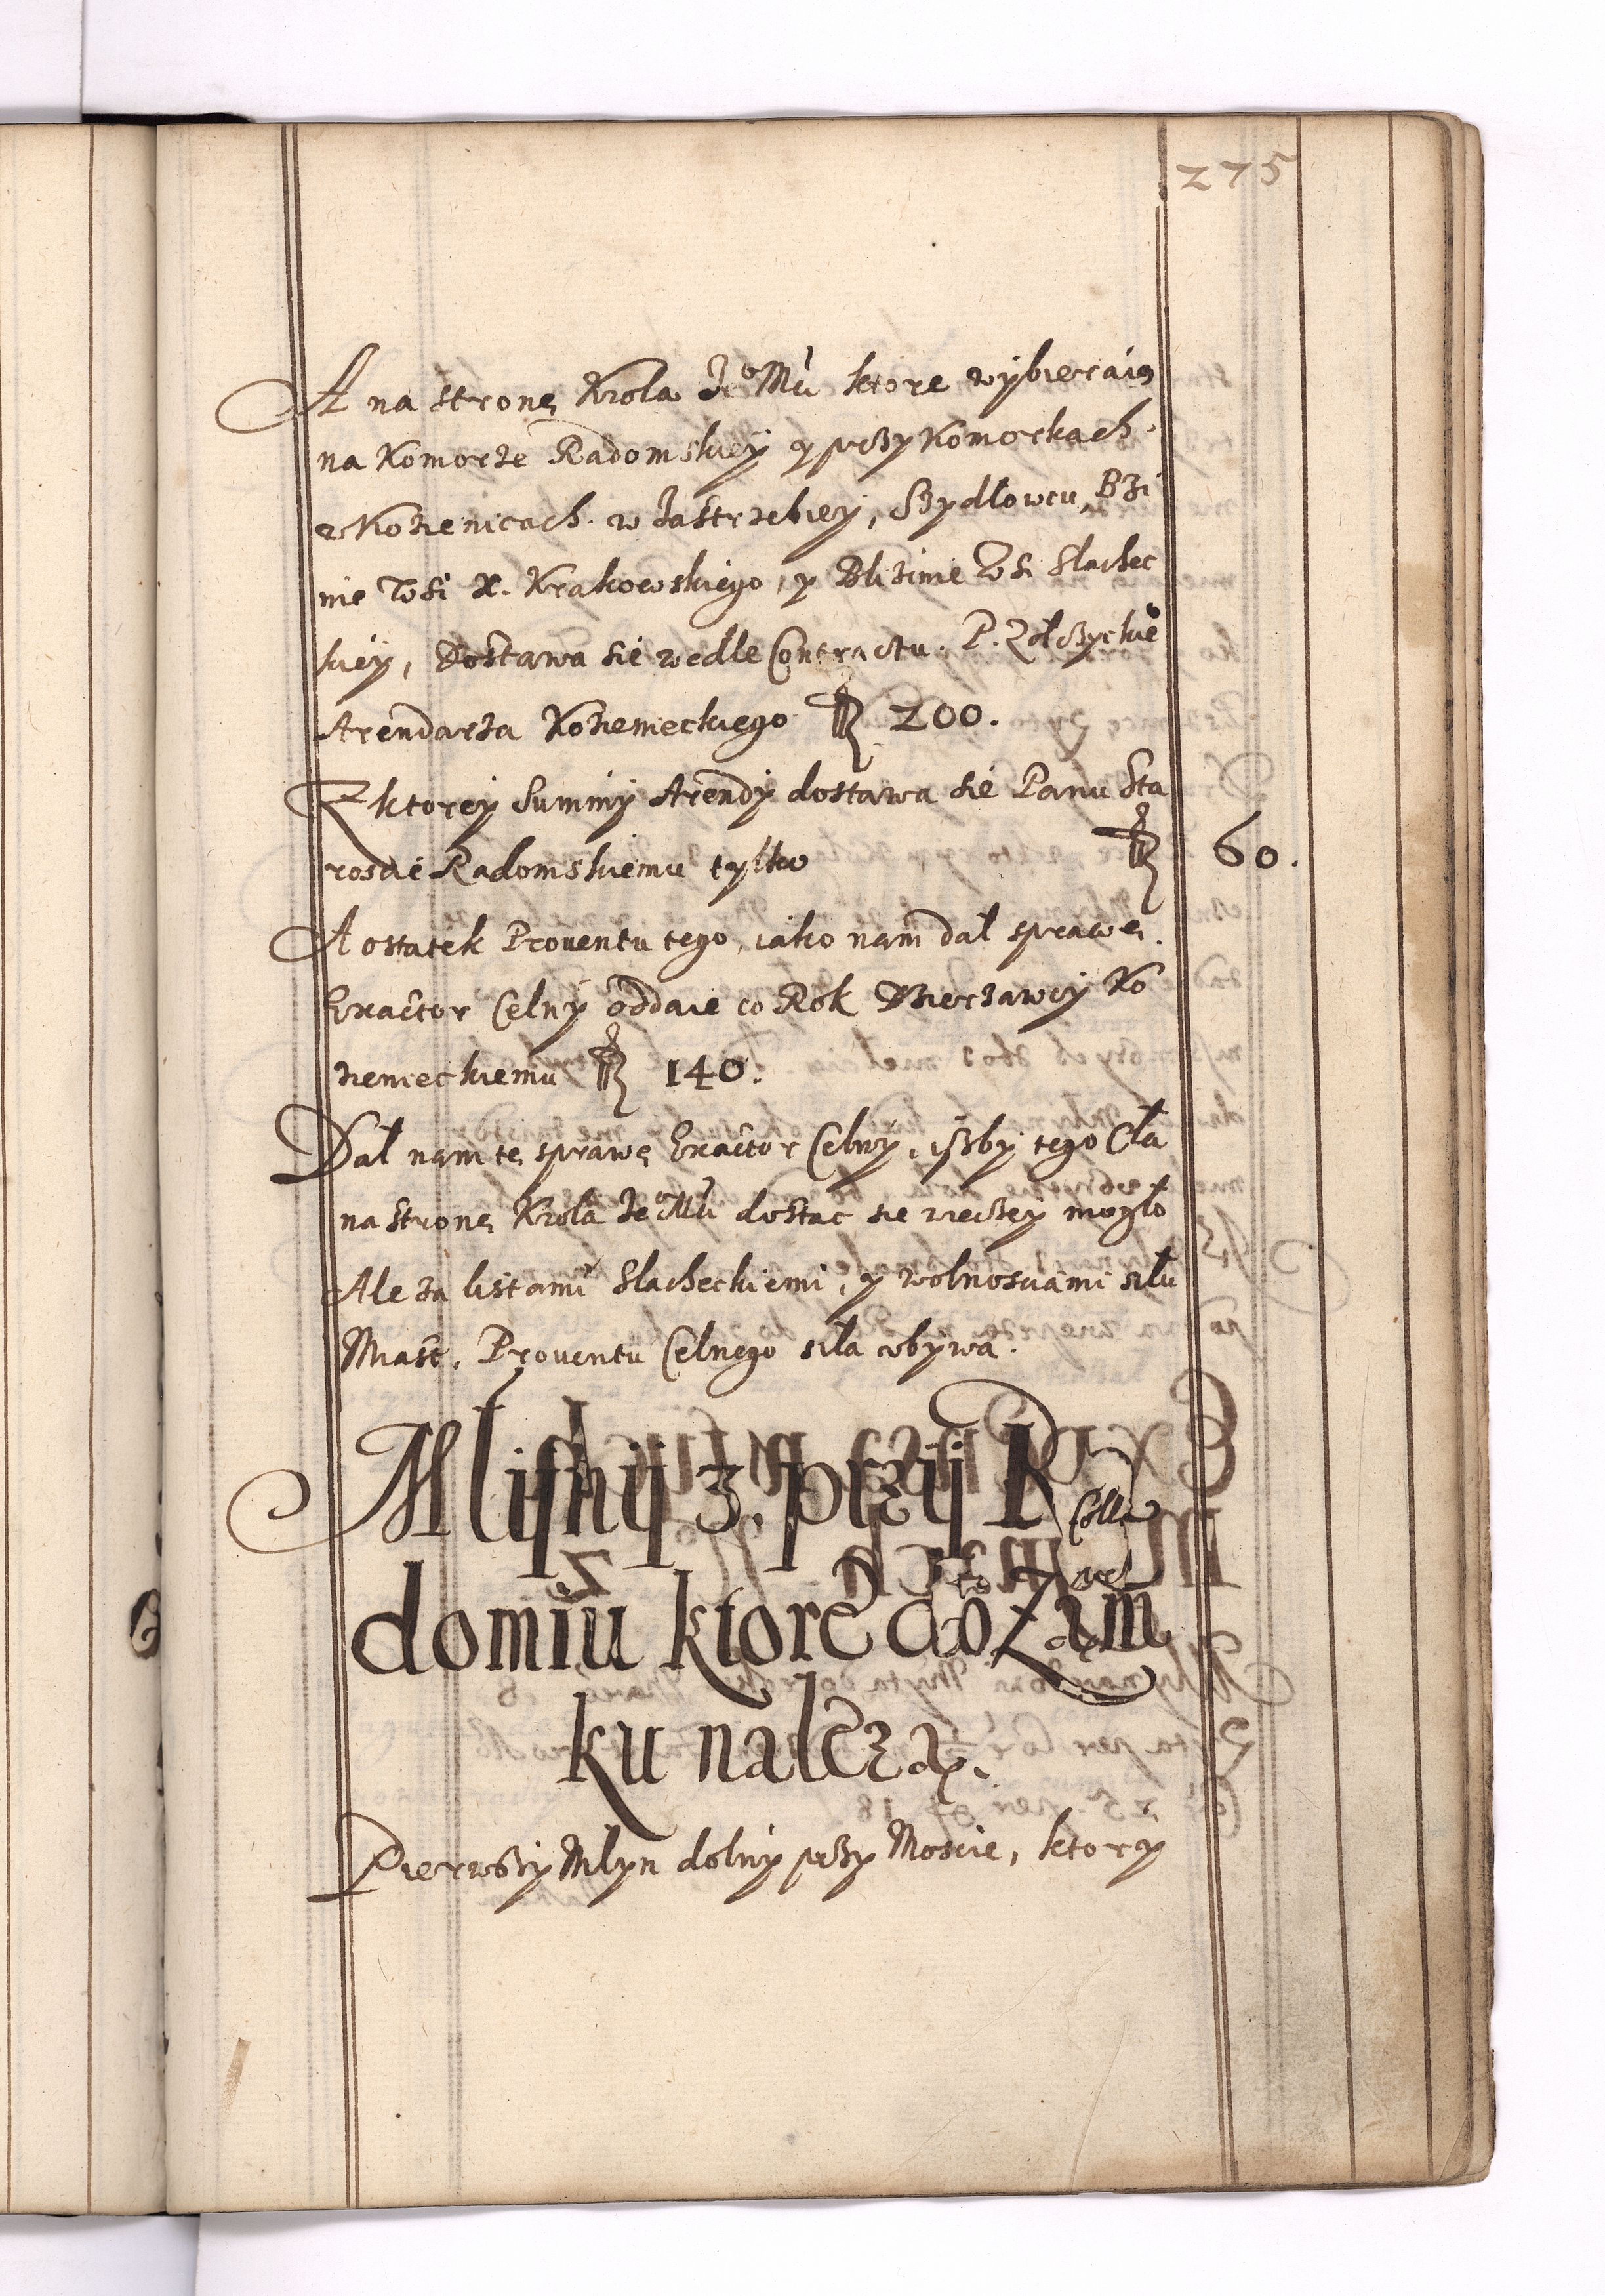 275
A na stronę Krola Jeº Mći ktore wybieraią
na Komorze Radomskiey y przy Komorkach
w Kozienicach. w Jastrzebiey, Szydłowcu, Bzi
nie Wsi X. Krakowskiego, y Bliżinie Wsi Slachec
kiey, Dostawa sie wedle Contractu. P.
Arendarza Kozienieckiego fl 200.
Z ktorey Summy Arendy dostawa sie Panu Sta
roscie Radomskiemu tylko fl 60.
A ostatek Proventu tego, iako nam dał sprawę.
Exactor Celny oddaie co Rok Dzierzawcy Ko
zienieckiemu fl 140.
Dał nam tę sprawę Exactor Celny, iszby tego Cła
na stronę Krola Jeº Mći dostac sie wieczey mogło
Ale za listami Slacheckiemi, y wolnosciami siłu
Miast, Proventu Celnego siła ubywa.
Młynÿ 3. przÿ Ra
domiu ktore do Zam
ku należą.
Pierwszy Młyn dolny przy Moscie, ktory